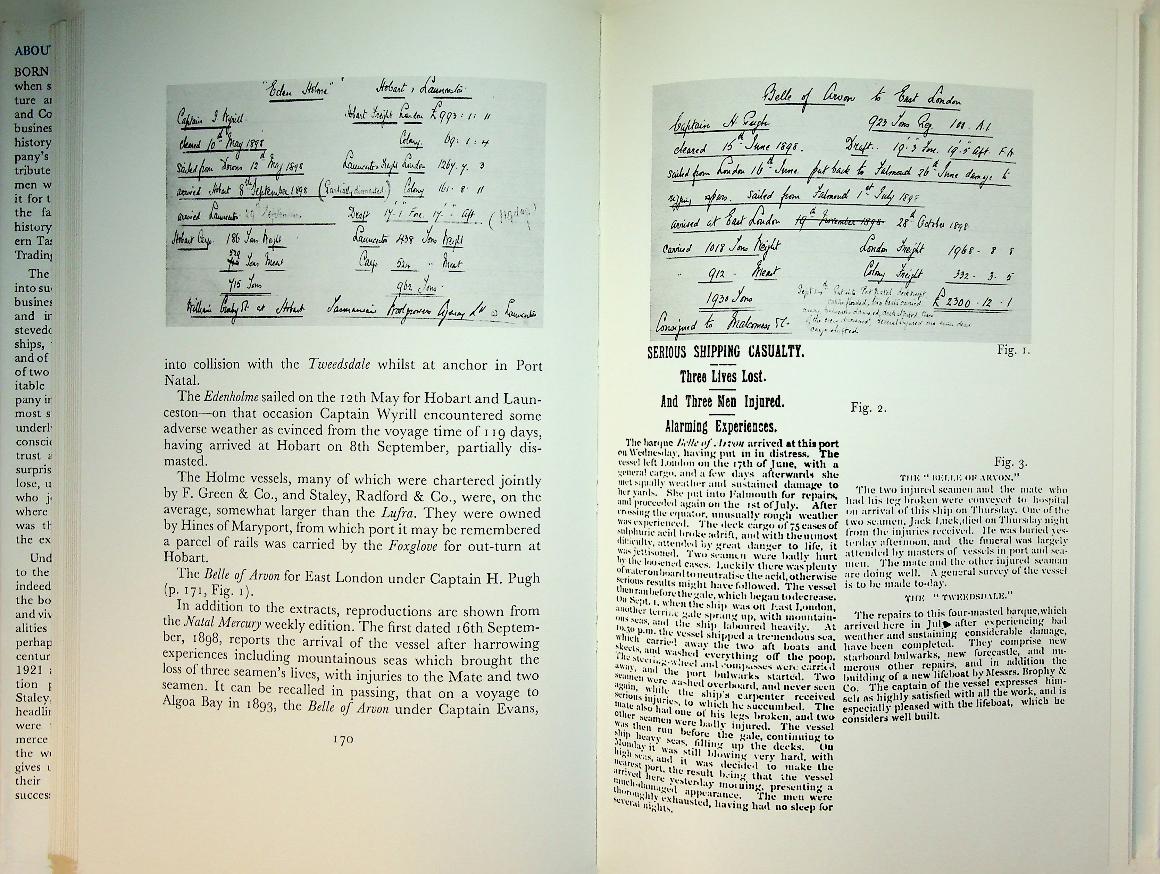 ABOU
BORN
when s
ture a
and Co
busines
history
pany's
tribute
men w
it for t
the fa
history
ern Ta
Trading
The
into su
busines
and in
stevedo
ships,
and of
of two
itable
pany i
most s
underl
conscie
trust a
surpris
lose, u
who j
where
was th
the ex
Und
to the
indeed
the bo
and viv
alities
perhap
centur
1921 a
tion p
Staley,
headli
were
merce
the wo
gives u
their
success
"Eden Holme" Hobart & Launceston
Captain J Wyrill. Hobart Freight London £993 . 11 . 11
cleared 10th May 1898 Colony. 69 . 1 . 4
Sailed from Downs 12th May 1898 Launceston Freight London 1267. 7. 3
arrived Hobart 8th September 1898 (Partially dismasted) Colony 161 . 8 . 11
arrived Launceston 29 September Draft 17' 1" Fore. 17' Aft.
Hobart Cargo. 186 Tons Weight Launceston 438 Tons Weight
529 Tons Meat Cargo 524 " Meat
715 Tons 962 Tons
William Crosby & Co at Hobart Tasmanian Woolgrowers Agency Ld at Launceston
into collision with the Tweedsdale whilst at anchor in Port
Natal.
The Edenholme sailed on the 12th May for Hobart and Laun-
ceston—on that occasion Captain Wyrill encountered some
adverse weather as evinced from the voyage time of 119 days,
having arrived at Hobart on 8th September, partially dis-
masted.
The Holme vessels, many of which were chartered jointly
by F. Green & Co., and Staley, Radford & Co., were, on the
average, somewhat larger than the Lufra. They were owned
by Hines of Maryport, from which port it may be remembered
a parcel of rails was carried by the Foxglove for out-turn at
Hobart.
The Belle of Arvon for East London under Captain H. Pugh
(p. 171, Fig. 1).
In addition to the extracts, reproductions are shown from
the Natal Mercury weekly edition. The first dated 16th Septem-
ber, 1898, reports the arrival of the vessel after harrowing
experiences including mountainous seas which brought the
loss of three seamen's lives, with injuries to the Mate and two
seamen. It can be recalled in passing, that on a voyage to
Algoa Bay in 1893, the Belle of Arvon under Captain Evans,
170
Belle of Arvon to East London
Captain H Pugh 923 Tons Reg 100 . A.1
cleared 15th June 1898. Draft. 19.3 Fore. 19.5 Aft. F.A
sailed from London 16th June put back to Falmouth 26th June damage to
rigging repairs. sailed from Falmouth 1st July 1898
arrived at East London 19th November 1898 28th October 1898
carried 1018 Tons Weight London Freight 1968 . 8 . 8
" 912 - Meat Colony Freight 332 . 3 . 5
1930 Tons £ 2300 . 12 . 1
Consigned to Malcomess & Co.
Fig. 1.
SERIOUS SHIPPING CASUALTY.
Three Lives Lost.
And Three Men Injured.
Alarming Experiences.
The barque Belle of Arvon arrived at this port
on Wednesday, having put in in distress. The
vessel left London on the 17th of June, with a
general cargo, and a few days afterwards she
met squally weather and sustained damage to
her yards. She put into Falmouth for repairs,
and proceeded again on the 1st of July. After
crossing the equator, unusually rough weather
was experienced. The deck cargo of 75 cases of
sulphuric acid broke adrift, and with the utmost
difficulty, attended by great danger to life, it
was jettisoned. Two seamen were badly hurt
by the loosened cases. Luckily there was plenty
of water on board to neutralise the acid, otherwise
serious results might have followed. The vessel
then ran before the gale, which began to decrease.
On Sept. 1, when the ship was off East London,
another terrific gale sprang up, with mountain-
ous seas, and the ship laboured heavily. At
10.30 p.m. the vessel shipped a tremendous sea,
which carried away the two aft boats and
skeets, and washed everything off the poop.
The steering-wheel and compasses were carried
away, and the port bulwarks started. Two
seamen were washed overboard, and never seen
again, while the ship's carpenter received
serious injuries, to which he succumbed. The
mate also had one of his legs broken, and two
other seamen were badly injured. The vessel
was then run before the gale, continuing to
ship heavy seas, filling up the decks. On
Monday it was still blowing very hard, with
high seas, and it was decided to make the
nearest port, the result being that the vessel
arrived here yesterday morning, presenting a
much-damaged appearance. The men were
thoroughly exhausted, having had no sleep for
several nights.
Fig. 2.
Fig. 3.
THE "BELLE OF ARVON."
The two injured seamen and the mate who
had his leg broken were conveyed to hospital
on arrival of this ship on Thursday. One of the
two seamen, Jack Luck, died on Thursday night
from the injuries received. He was buried yes-
terday afternoon, and the funeral was largely
attended by masters of vessels in port and sea-
men. The mate and the other injured seaman
are doing well. A general survey of the vessel
is to be made to-day.
THE "TWEEDSDALE."
The repairs to this four-masted barque, which
arrived here in July after experiencing bad
weather and sustaining considerable damage,
have been completed. They comprise new
starboard bulwarks, new forecastle, and nu-
merous other repairs, and in addition the
building of a new lifeboat by Messrs. Brophy &
Co. The captain of the vessel expresses him-
self as highly satisfied with all the work, and is
especially pleased with the lifeboat, which he
considers well built.